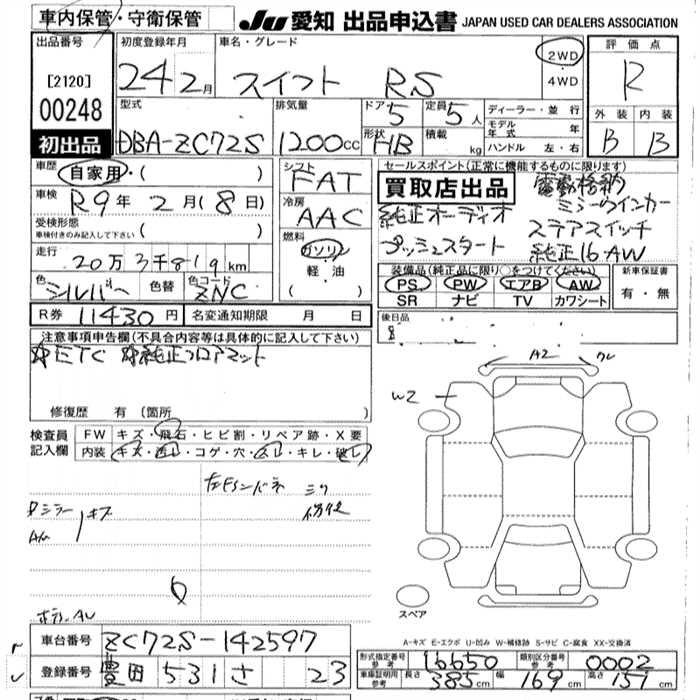 車内保管・守衛保管
JU 愛知 出品申込書 JAPAN USED CAR DEALERS ASSOCIATION
出品番号 初度登録年月 車名・グレード 2WD 評価点
[2120] 24 2月 スイフト RS 4WD R
00248 型式 排気量 ドア 5 定員 5人 ディーラー・並行 外装 内装
初出品 DBA-ZC72S 1200cc 形状 HB 積載 kg モデル年式 年 B B
ハンドル 左・右
車歴 自家用・( ) シフト FAT セールスポイント(正常に機能するものに限ります)
車検 R9年 2月(8日) 冷房 AAC 買取店出品 電動格納
純正オーディオ ミラーウインカー
受検形態 ( ) ステアスイッチ
車検付きのみ記入して下さい 燃料 ガソリン プッシュスタート 純正16AW
走行 20万3千819km 軽・油 装備品(純正品に限り○をつけてください) 新車保証書
色 シルバー 色替 色コード ZNC ( ) PS PW エアB AW 有・無
SR ナビ TV カワシート
R券 11430円 名変通知期限 月 日 後日品
注意事項申告欄(不具合内容等は具体的に記入して下さい)
ETC 純正フロアマット
A2
W2
修復歴 有(箇所 )
検査員記入欄 FW キズ・飛石・ヒビ割・リペア跡・X要
内装 キズ・コゲ・穴・キレ・破レ
キズ
スペア
A-キズ E-エクボ U-凹み W-補修跡 S-サビ C-腐食 XX-交換済
車台番号 ZC72S-142597
形式指定番号 参考 16650 類別区分番号 参考 0002
登録番号 豊田 531 さ 23
車庫証明用 参考 長さ 385cm 幅 169cm 高さ 151cm